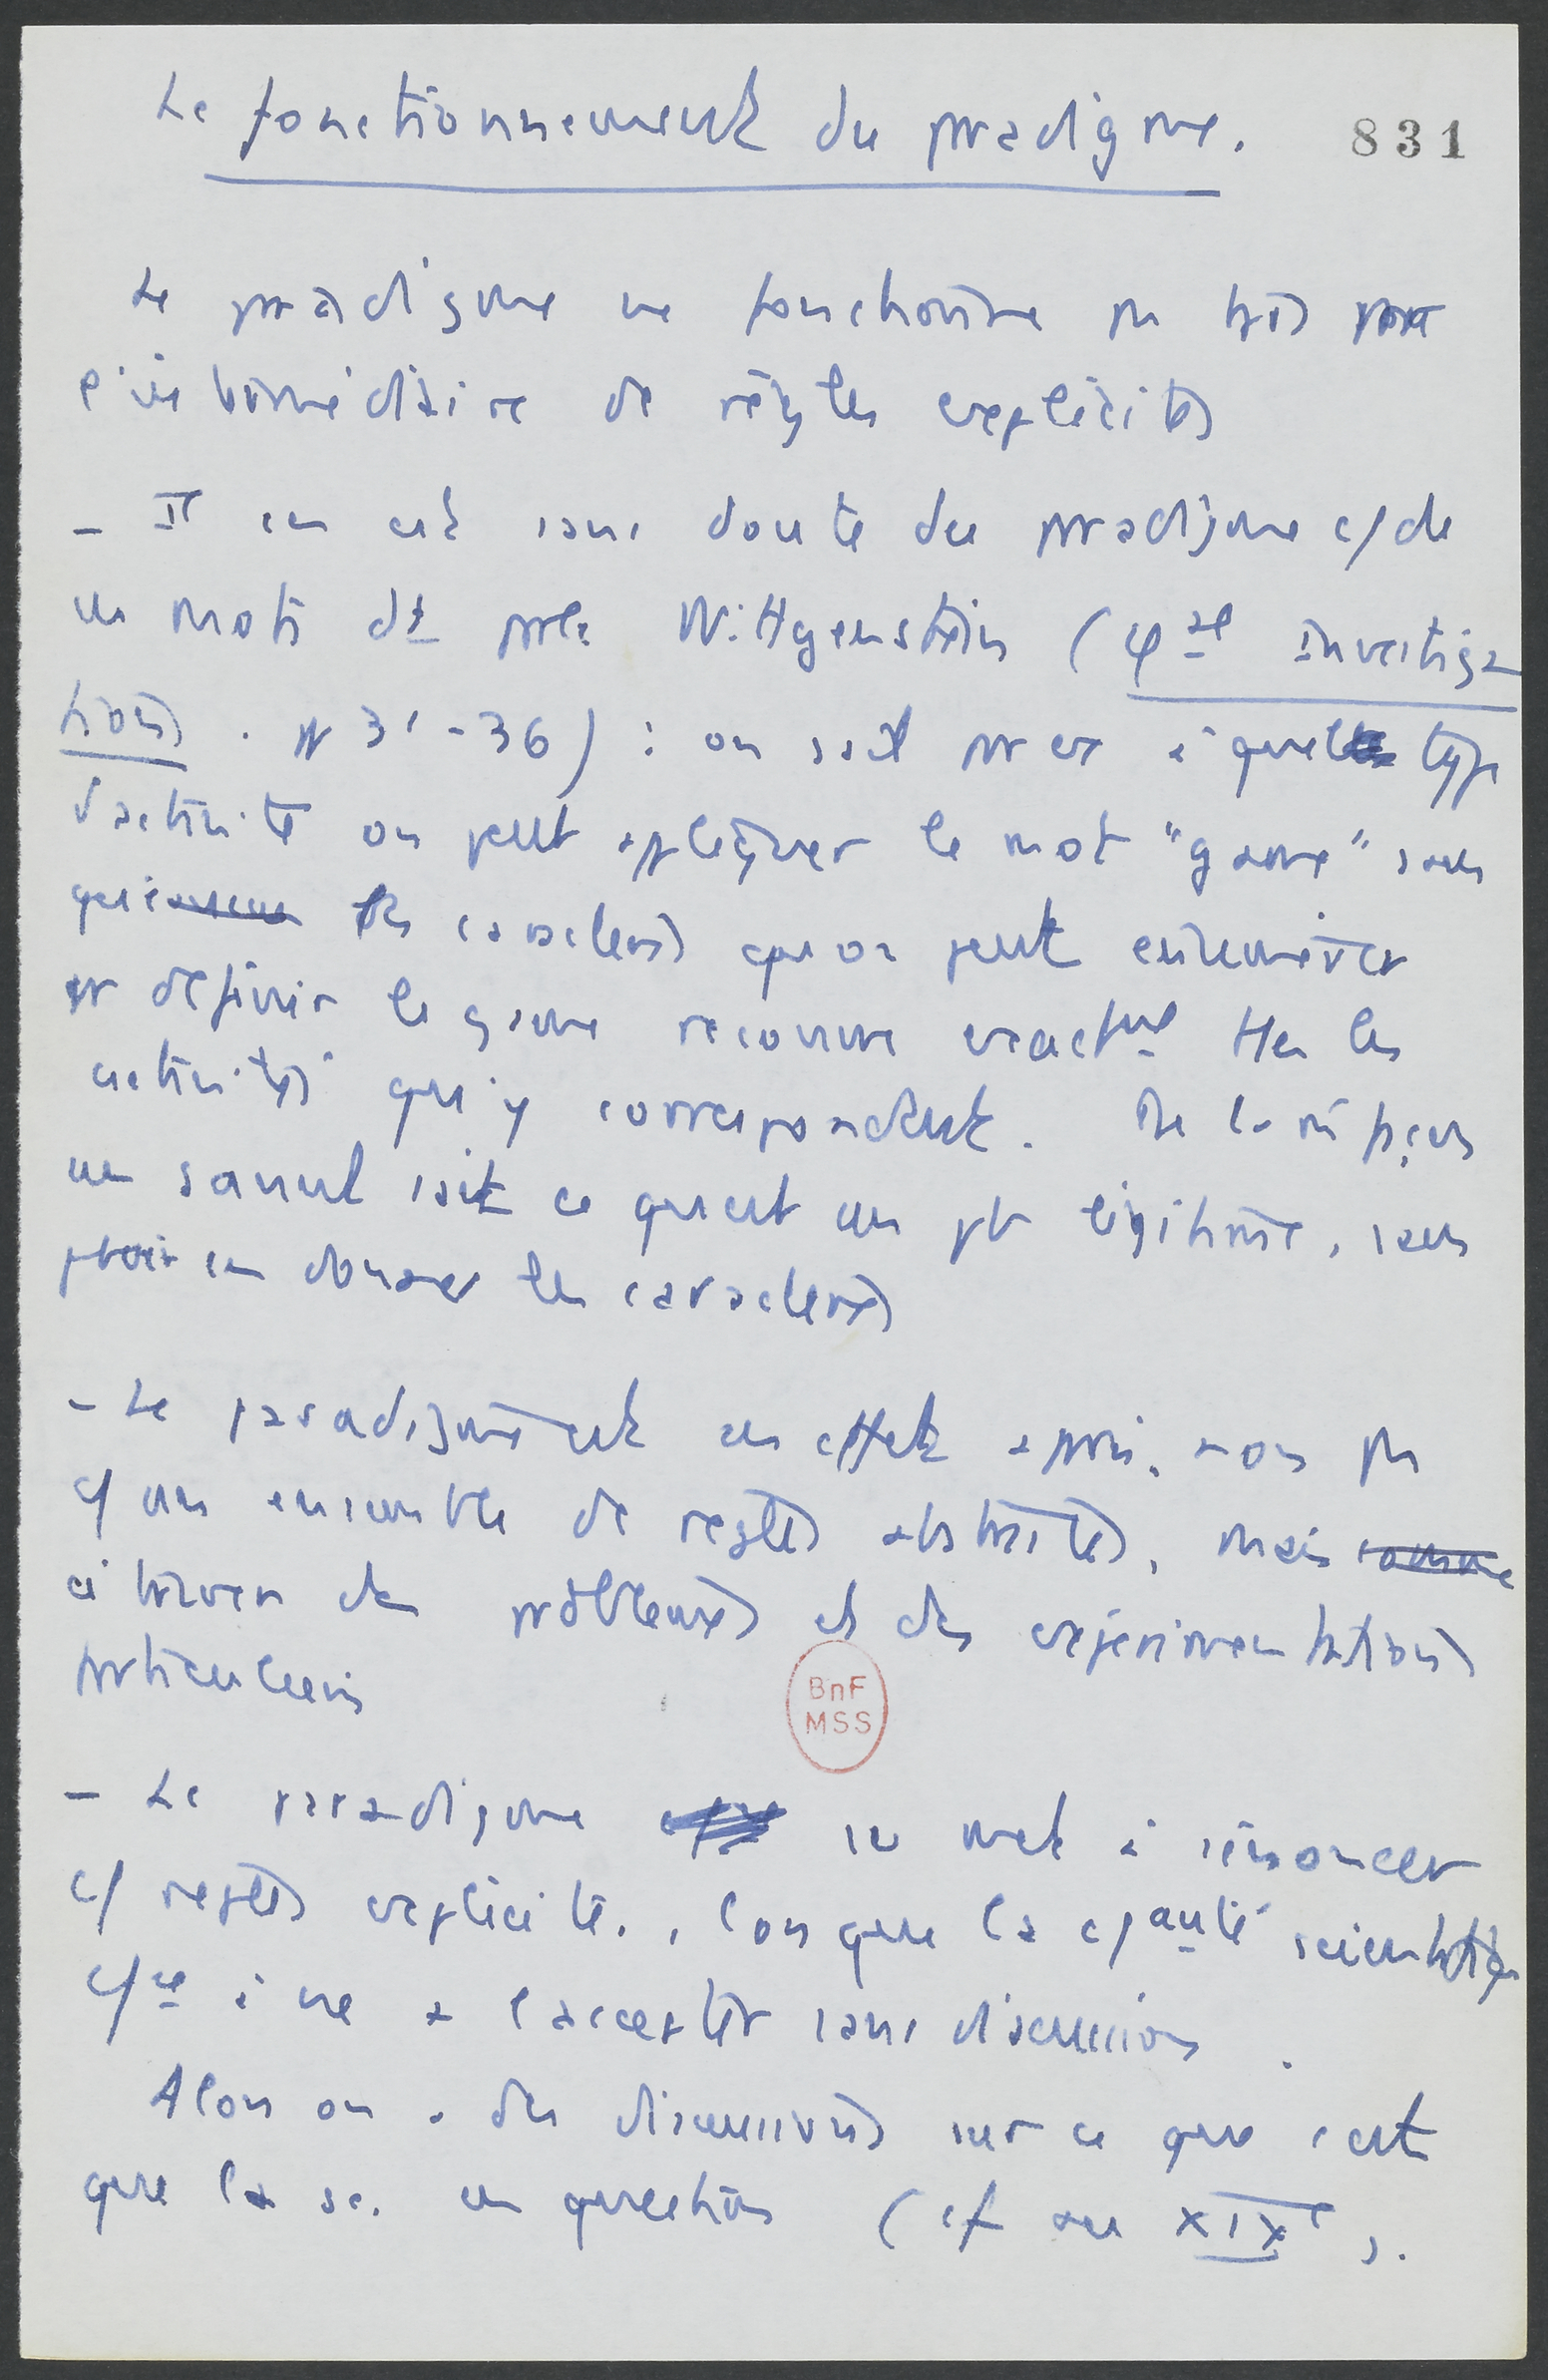 Le fonctionnement du pradigme.
831
Le pradigme ne fonctionne pas
l'intermédiaire de règles explicites
- Il en est sans doute du pradigme c/ de
ces mots dt parle Wittgenstein (φque investiga
tions. 31-36) : on sait par ex à quel type
d'activité on peut appliquer le mot "game" sans
que les caractères qu'on peut énumérer
pr définir le game recouvre exactmt ttes les
activités qui y correspondent. De la m̂ façon
un savant sait ce qu'est un pb légitime, sans
pvoir en donner les caractères
- Le paradigme est en effet appris, non pas
c/ un ensemble de règles abstraites, mais comme
à travers des problèmes et des expérimentations
particuliers
- Le paradigme se met à s'énoncer
c/ règles explicites, lorsque la c/auté scientifique
c/ce à ne + l'accepter sans discussion.
Alors on a des discussions sur ce que c'est
que la sc. en question (cf au XIXe).
BnF
MSS